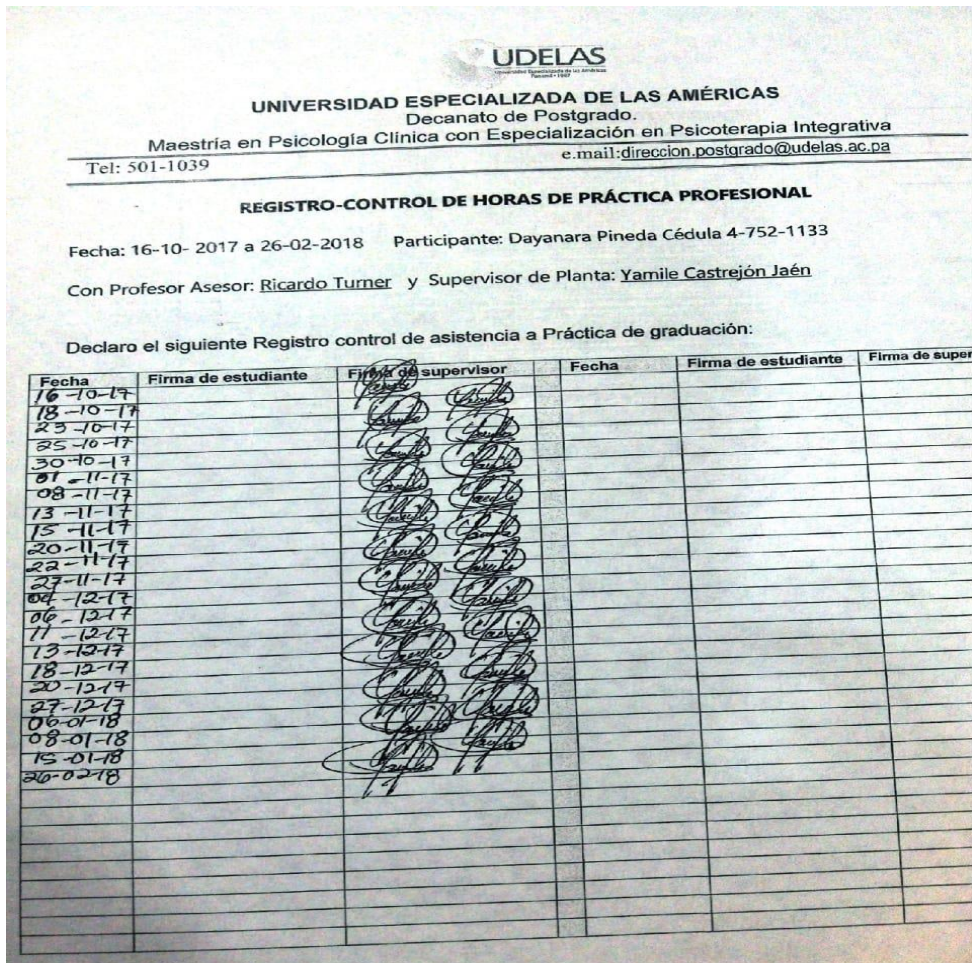 UDELAS
Universidad Especializada de las Américas
Panamá • 1997
UNIVERSIDAD ESPECIALIZADA DE LAS AMÉRICAS
Decanato de Postgrado.
Maestría en Psicología Clínica con Especialización en Psicoterapia Integrativa
Tel: 501-1039 e.mail:direccion.postgrado@udelas.ac.pa
REGISTRO-CONTROL DE HORAS DE PRÁCTICA PROFESIONAL
Fecha: 16-10- 2017 a 26-02-2018 Participante: Dayanara Pineda Cédula 4-752-1133
Con Profesor Asesor: Ricardo Turner y Supervisor de Planta: Yamile Castrejón Jaén
Declaro el siguiente Registro control de asistencia a Práctica de graduación:
Fecha Firma de estudiante Firma de supervisor Fecha Firma de estudiante Firma de super
16-10-17
18-10-17
23-10-17
25-10-17
30-10-17
01-11-17
08-11-17
13-11-17
15-11-17
20-11-17
22-11-17
27-11-17
04-12-17
06-12-17
11-12-17
13-12-17
18-12-17
20-12-17
27-12-17
06-01-18
08-01-18
15-01-18
26-02-18